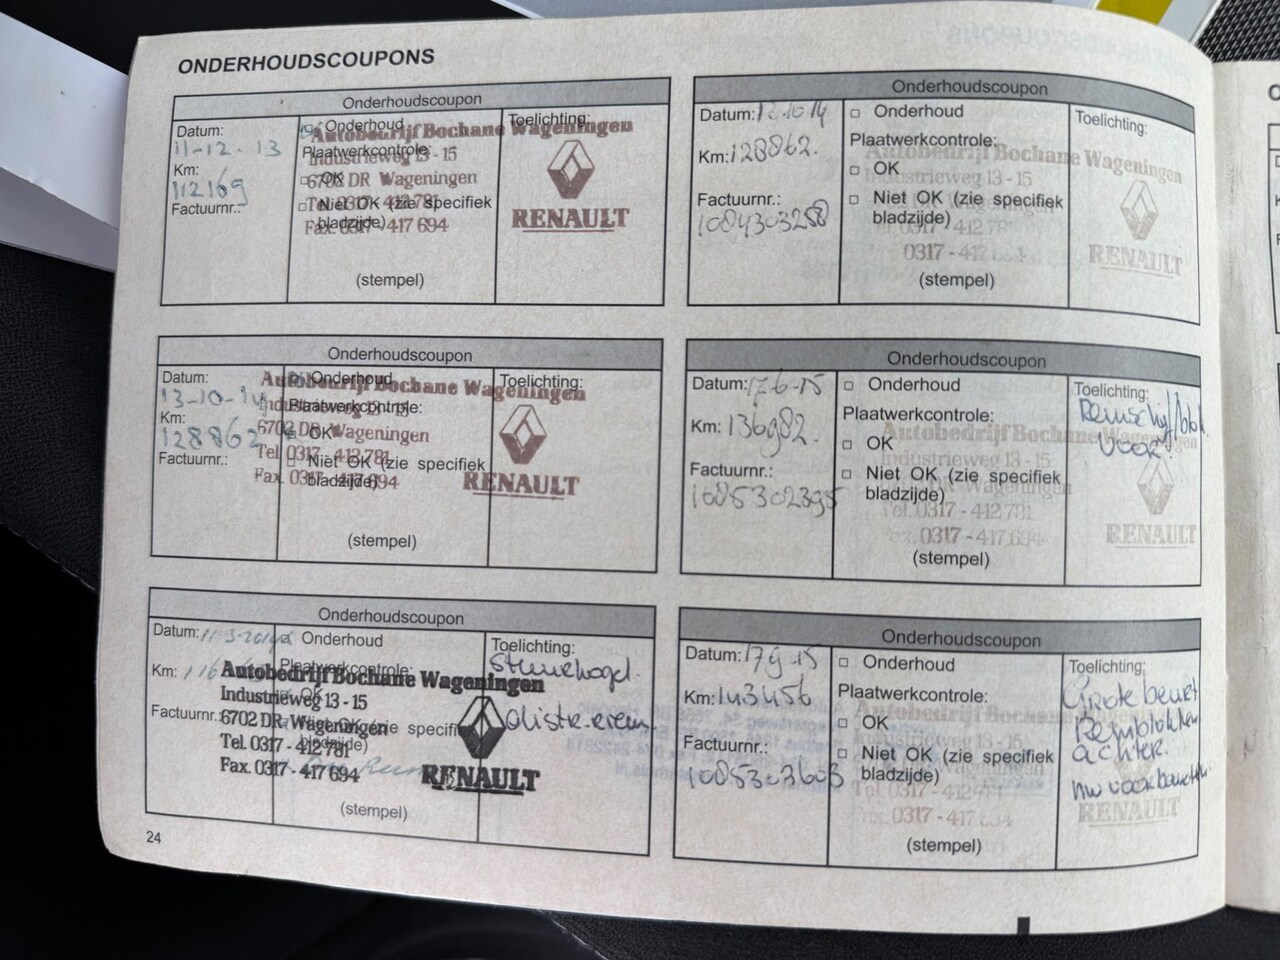 ONDERHOUDSCOUPONS
Onderhoudscoupon
Datum:
11-12-13
Km:
112169
Factuurnr.:
Onderhoud
Plaatwerkcontrole:
OK
Niet OK (zie specifiek
bladzijde)
(stempel)
Toelichting:
Autobedrijf Bochane Wageningen
Industrieweg 13 - 15
6702 DR Wageningen
Tel. 0317 - 412 781
Fax. 0317 - 417 694
RENAULT
Onderhoudscoupon
Datum: 13-10-14
Km: 128862.
Factuurnr.:
1084303258
Onderhoud
Plaatwerkcontrole:
OK
Niet OK (zie specifiek
bladzijde)
(stempel)
Toelichting:
Autobedrijf Bochane Wageningen
Industrieweg 13 - 15
Wageningen
0317 - 412 781
0317 - 417
RENAULT
Onderhoudscoupon
Datum:
13-10-14
Km:
128862
Factuurnr.:
Onderhoud
Plaatwerkcontrole:
OK
Niet OK (zie specifiek
bladzijde)
(stempel)
Toelichting:
Autobedrijf Bochane Wageningen
Industrieweg 13 - 15
6702 DR Wageningen
Tel. 0317 - 412 781
Fax. 0317 - 417 694
RENAULT
Onderhoudscoupon
Datum: 17-6-15
Km: 136982.
Factuurnr.:
1085302395
Onderhoud
Plaatwerkcontrole:
OK
Niet OK (zie specifiek
bladzijde)
(stempel)
Toelichting:
Remschijf/blok
voor
Autobedrijf Bochane Wageningen
Industrieweg 13 - 15
DR Wageningen
Tel. 0317 - 412 781
Fax. 0317 - 417 694
RENAULT
Onderhoudscoupon
Datum: 11-3-2014
Km: 116
Factuurnr.:
Onderhoud
Plaatwerkcontrole:
OK
Niet OK (zie specifiek
bladzijde)
(stempel)
Toelichting:
Stuurkogel
Autobedrijf Bochane Wageningen
Industrieweg 13 - 15
6702 DR Wageningen
Tel. 0317 - 412 781
Fax. 0317 - 417 694
RENAULT
Onderhoudscoupon
Datum: 17-9-15
Km: 143456
Factuurnr.:
1085303603
Onderhoud
Plaatwerkcontrole:
OK
Niet OK (zie specifiek
bladzijde)
(stempel)
Toelichting:
Grote beurt
Remblokken
achter.
Autobedrijf Bochane Wageningen
Industrieweg 13 - 15
Wageningen
Tel. 0317 - 412
Fax. 0317 - 417 694
RENAULT
24